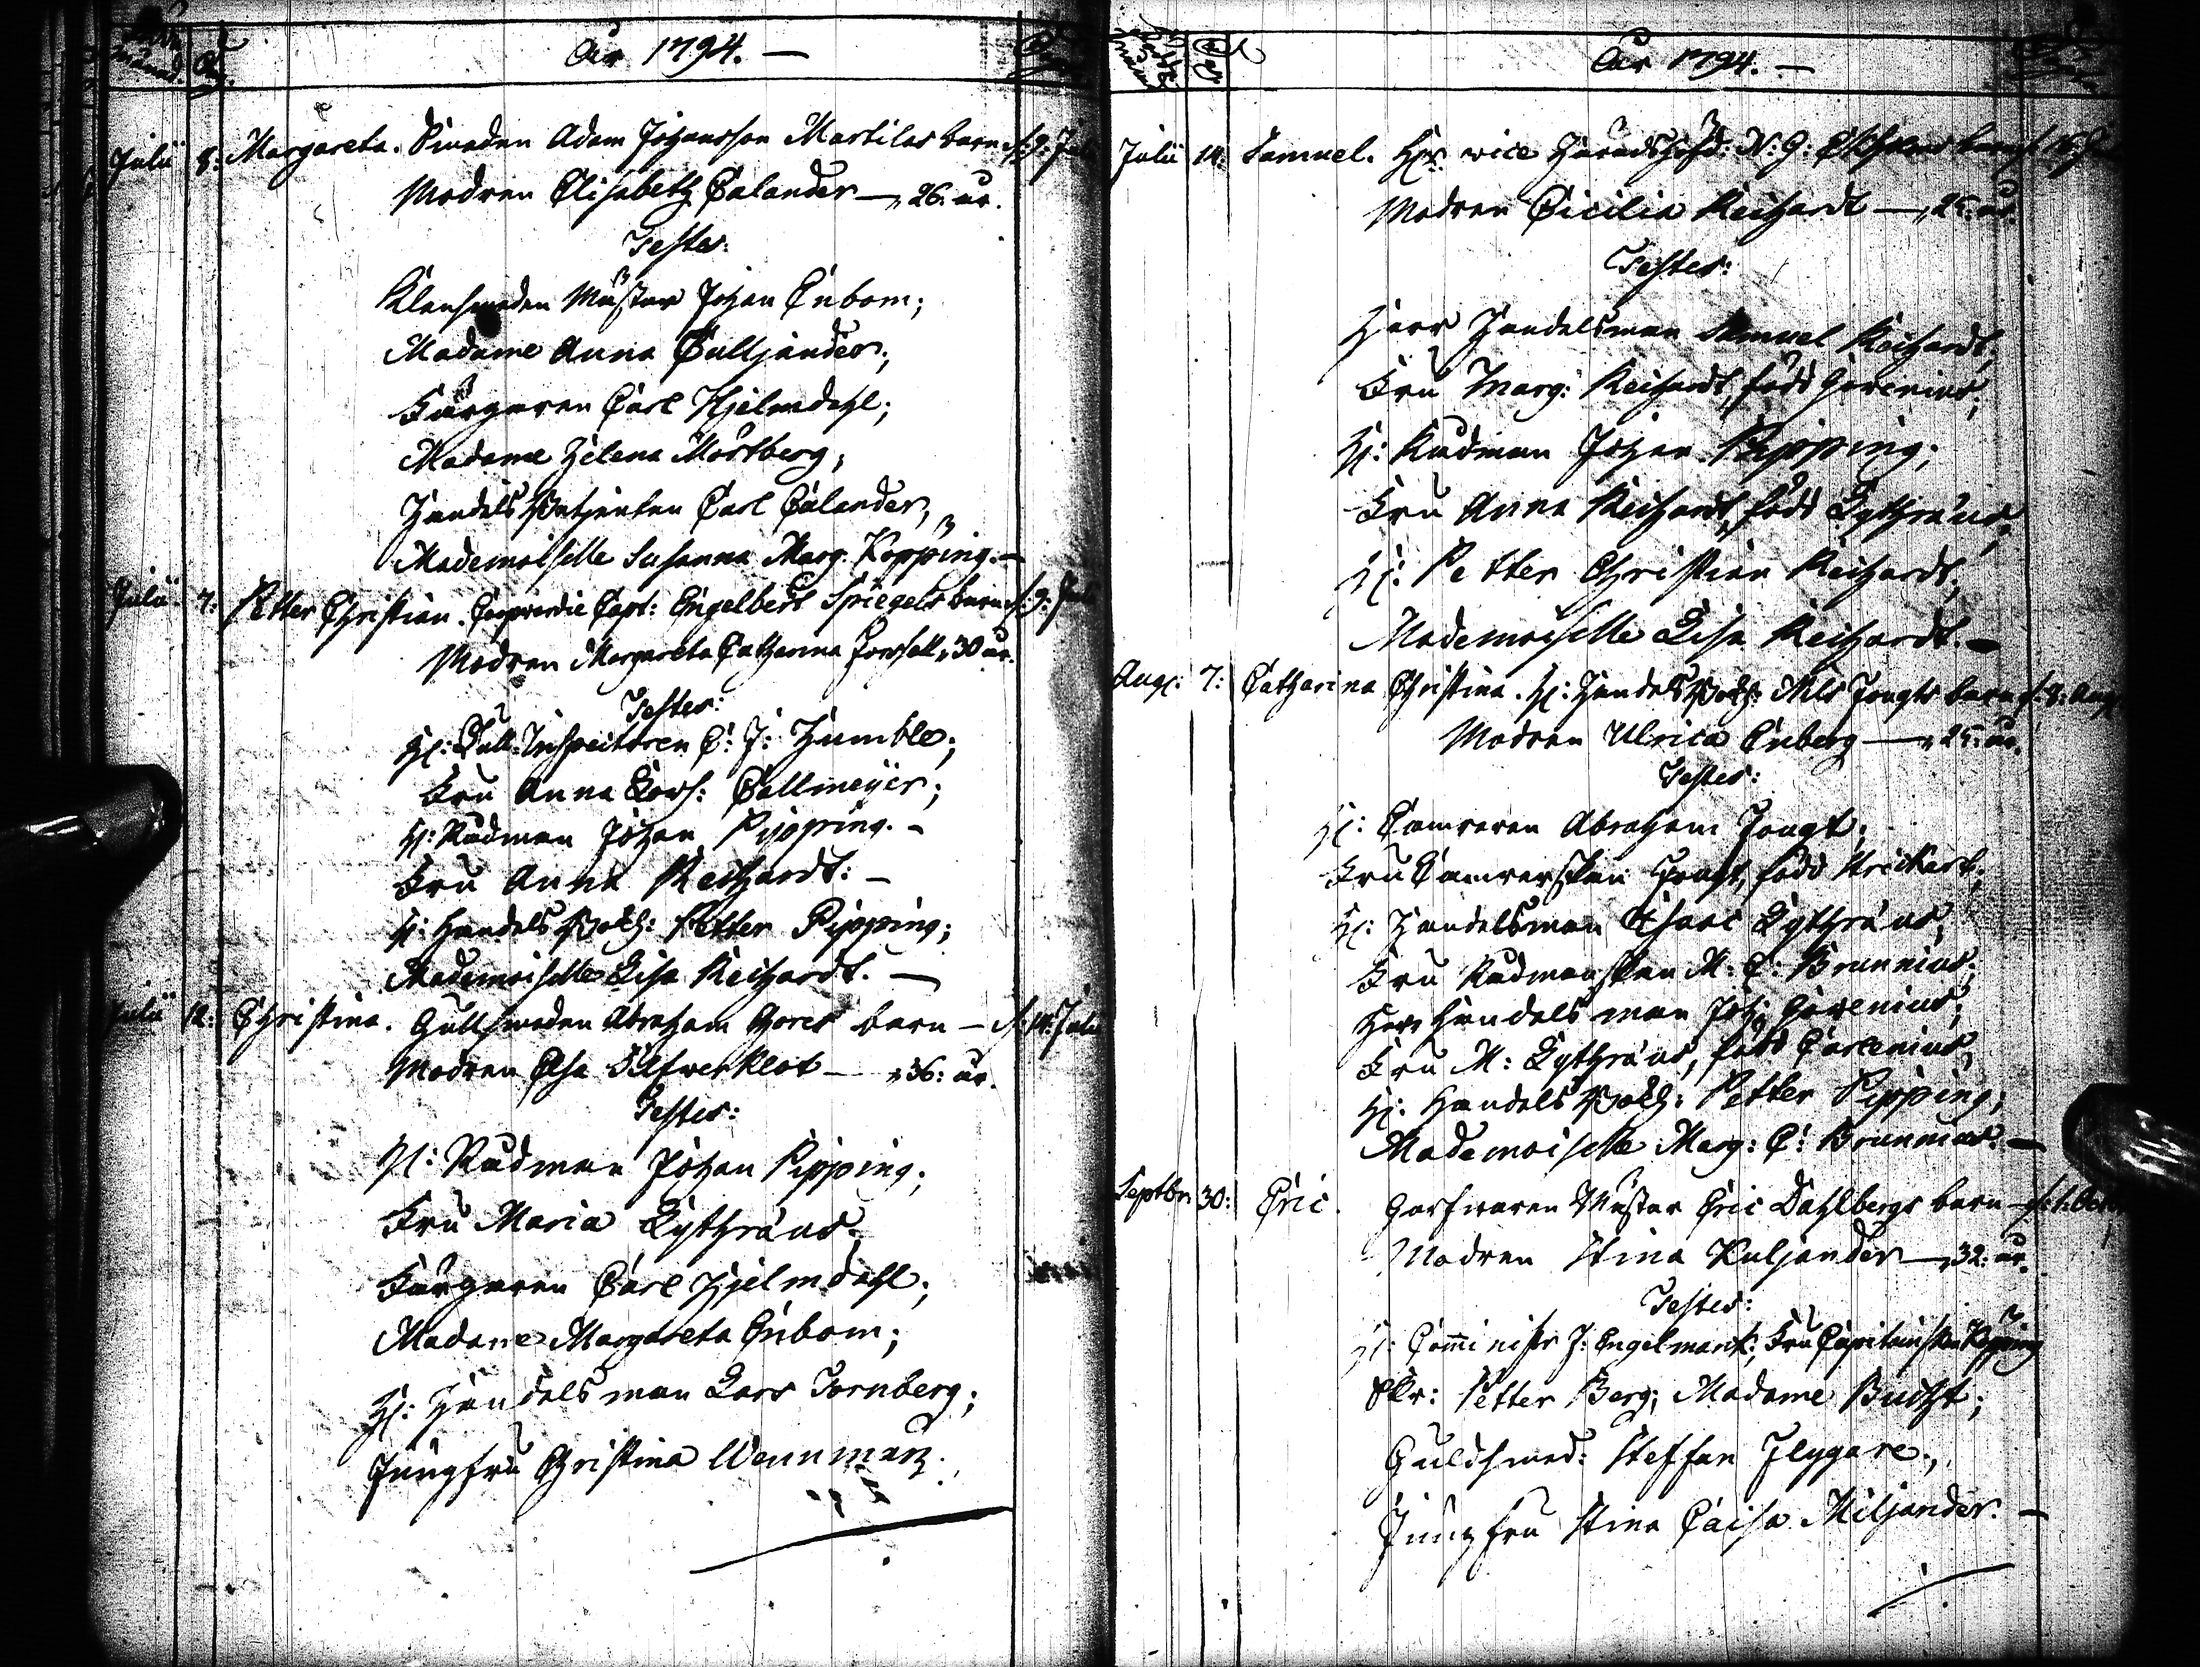 År 1794.—
Julii 8: Margareta. Smeden Adam Johansson Martilas barn d. 9: Julii
Modren Elisabeth Calander —, 26. år.
Testes:
Klensmeden Mästar Johan Enbom;
Madame Anna Culljander;
Färgaren Carl Hjelmdahl;
Madame Helena Mörtberg;
Handels Betjenten Carl Calander,
Mademoiselle Susanna Marg. Kopping.—
Julii 7: Petter Christian. Capt: Engelbert Spiegels barn d. 9: Julii
Modren Margareta Catharina Forssell, 30 år.
Testes:
H: Tull-Inspectoren C: J: Humble;
Fru Anna Callmeijer;
H: Rådman Johan Pipping.—
Fru Anna Reichardt:—
H: Handels Bokh: Petter Pipping;
Mademoiselle Lisa Reichardt.—
Julii 12: Christina. Gullsmeden Abraham Gores barn — d. 14: Julii
Modren Elsa Silfwerklot — 36: år.
Testes:
H: Rådman Johan Pipping;
Fru Maria Lythræus;
Färgaren Carl Hjelmdahl;
Madame Margareta Enbom;
H: Handelsman Lars Tornberg;
Jungfru Christina Wennmark.
År 1794.—
Julii 14: Samuel. Hr vice Häradshöfd: N: G: barn
Modren Cicilia Reichardt —, 25: år.
Testes:
Herr Handelsman Samuel Reichardt;
Fru Marg: Reichardt, född
H: Rådman Johan Pipping;
Fru Anna Reichardt, född Lythræus;
H: Petter Christian Reichardt;
Mademoiselle Lisa Reichardt.—
Aug: 7: Catharina Christina. H: Handels Bokh: Nils Fougts barn d. 8: Aug:
Modren Ulrica Enberg —, 25: år.
Testes:
H: Camreren Abraham Fougt;
Fru Camrerskan Fougt, född Strickert;
H: Handelsman Isaac Lythræus;
Fru Rådmanskan M: C: Brunnius;
Herr Handelsman Joh: Corvenius;
Fru M: Lythræus, född
H: Handels Bokh: Petter Pipping;
Mademoiselle Marg: C: Brunnius.—
Septbr: 30: Eric. Garfwaren Mästar Eric Dahlbergs barn — d. 1:
Modren Stina Kuljander —, 32: år.
Testes:
H: Comminister J: Engelmark; Fru Capitainskan Kopping
Skr: Petter Berg; Madame Bucht;
Guldsmed: Steffan Flygare;
Jungfru Stina Caisa Miljander.—